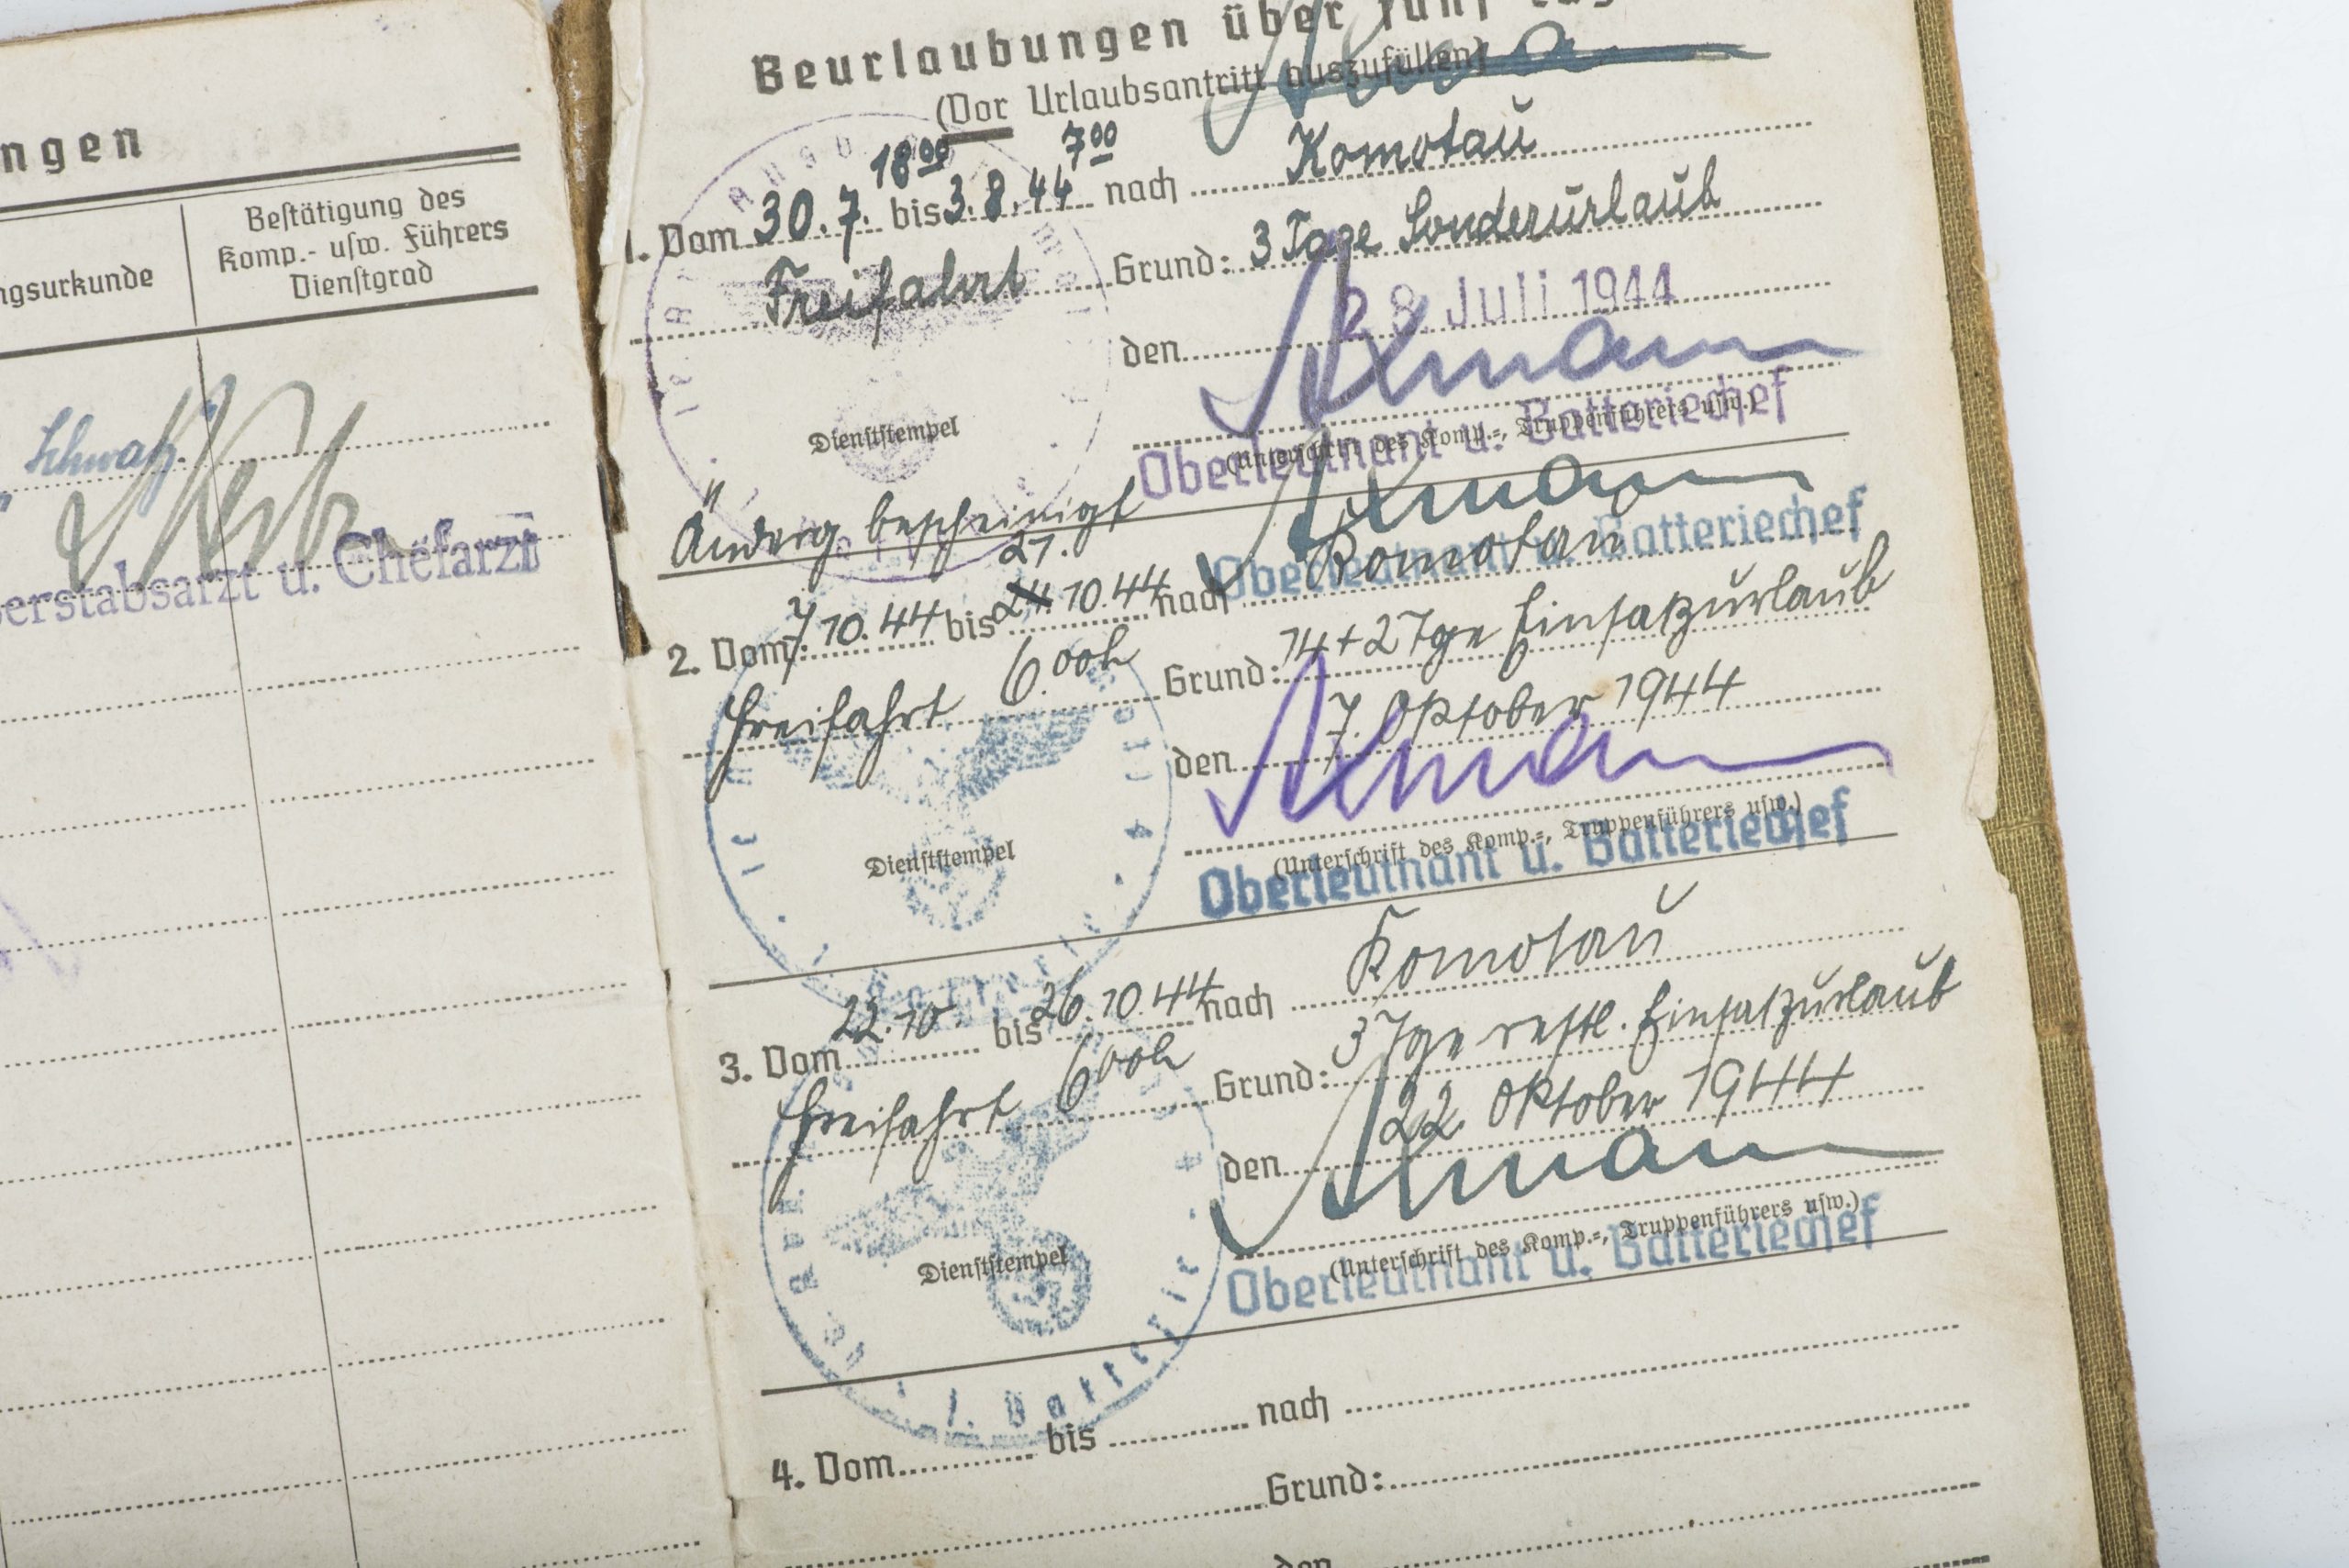 ngen
ngsurkunde
Bestätigung des
Komp.- usw. Führers
Dienstgrad
Schwarz
erstabsarzt u. Chefarzt
Beurlaubungen über fünf
(Vor Urlaubsantritt auszufüllen)
18⁰⁰ 7⁰⁰
1. Vom 30.7. bis 3.8.44 nach Komotau
Freifahrt Grund: 3 Tage Sonderurlaub
den 28. Juli 1944
Dienststempel
(Unterschrift des Komp.-, Truppenführers usw.)
Oberleutnant u. Batteriechef
Änderg bescheinigt
Oberleutnant u. Batteriechef
21.
2. Vom 7.10.44 bis 24.10.44 nach Komotau
Freifahrt 6.00h Grund: 14+2 Tge Einsatzurlaub
den 7. Oktober 1944
Dienststempel
(Unterschrift des Komp.-, Truppenführers usw.)
Oberleutnant u. Batteriechef
3. Vom 22.10. bis 26.10.44 nach Komotau
Freifahrt 6⁰⁰h Grund: 3 Tge restl. Einsatzurlaub
den 22. Oktober 1944
Dienststempel
(Unterschrift des Komp.-, Truppenführers usw.)
Oberleutnant u. Batteriechef
1. Batterie
4. Vom bis nach
Grund:
den